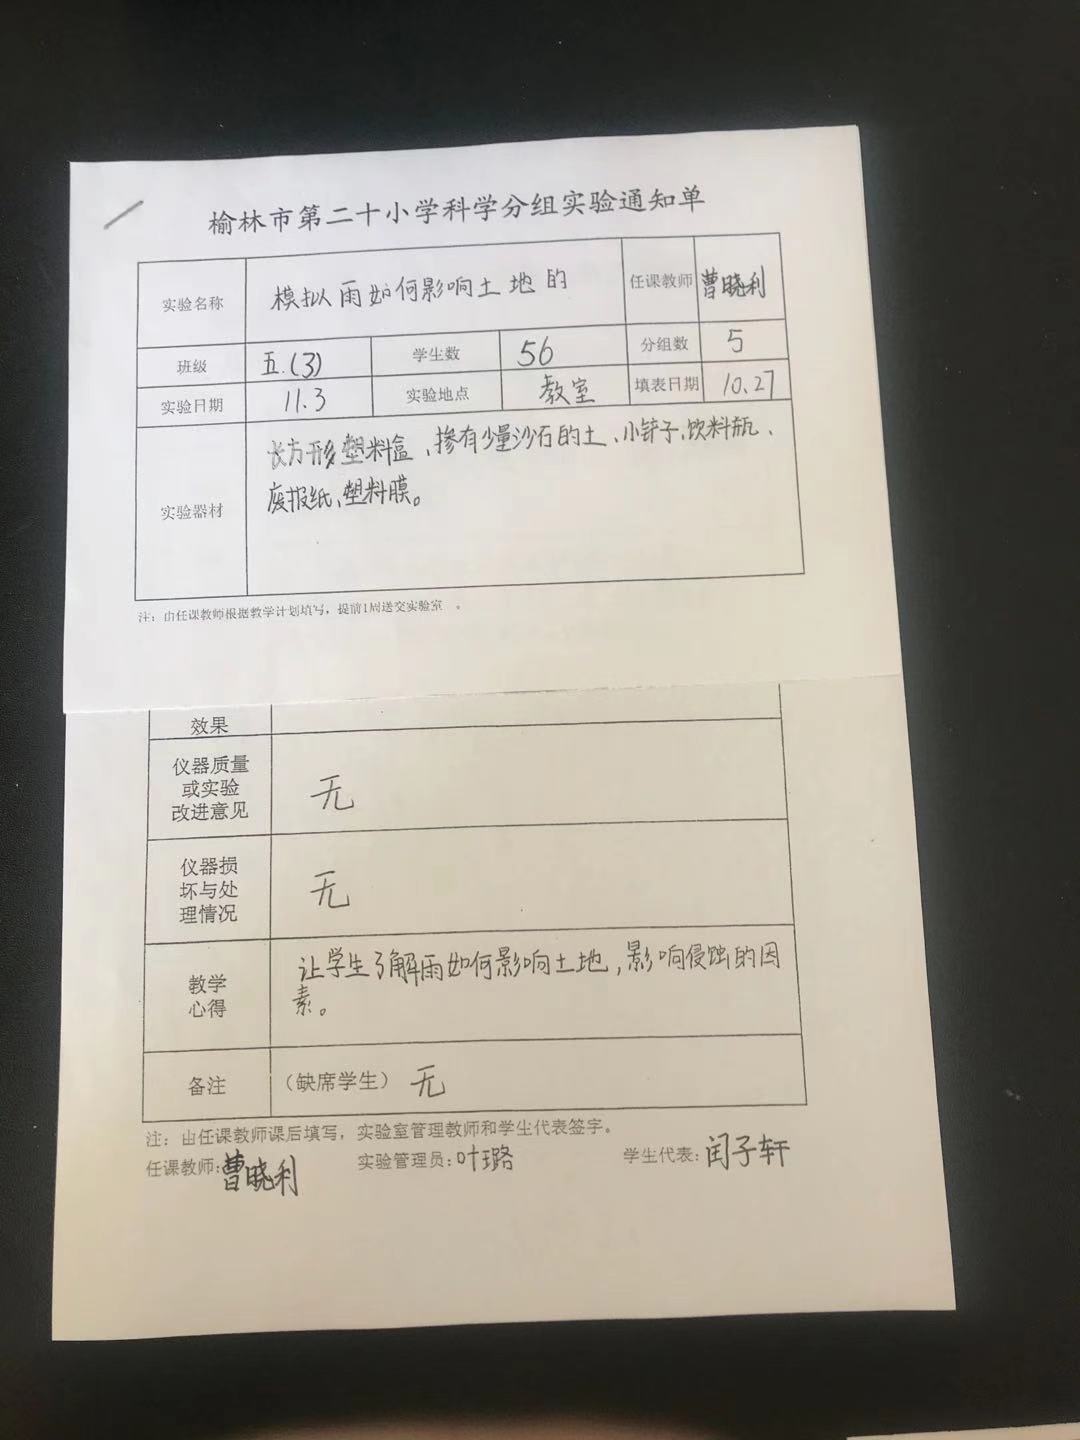 榆林市第二十小学科学分组实验通知单
实验名称 模拟雨如何影响土地的 任课教师 曹晓利
班级 五.(3) 学生数 56 分组数 5
实验日期 11.3 实验地点 教室 填表日期 10.27
实验器材
长方形塑料盒、掺有少量沙石的土、小铲子、饮料瓶、
废报纸、塑料膜。
注：由任课教师根据教学计划填写，提前1周送交实验室 。
效果
仪器质量
或实验
改进意见
无
仪器损
坏与处
理情况
无
教学
心得
让学生了解雨如何影响土地，影响侵蚀的因
素。
备注 （缺席学生） 无
注：由任课教师课后填写，实验室管理教师和学生代表签字。
任课教师：曹晓利 实验管理员：叶璐 学生代表：闫子轩